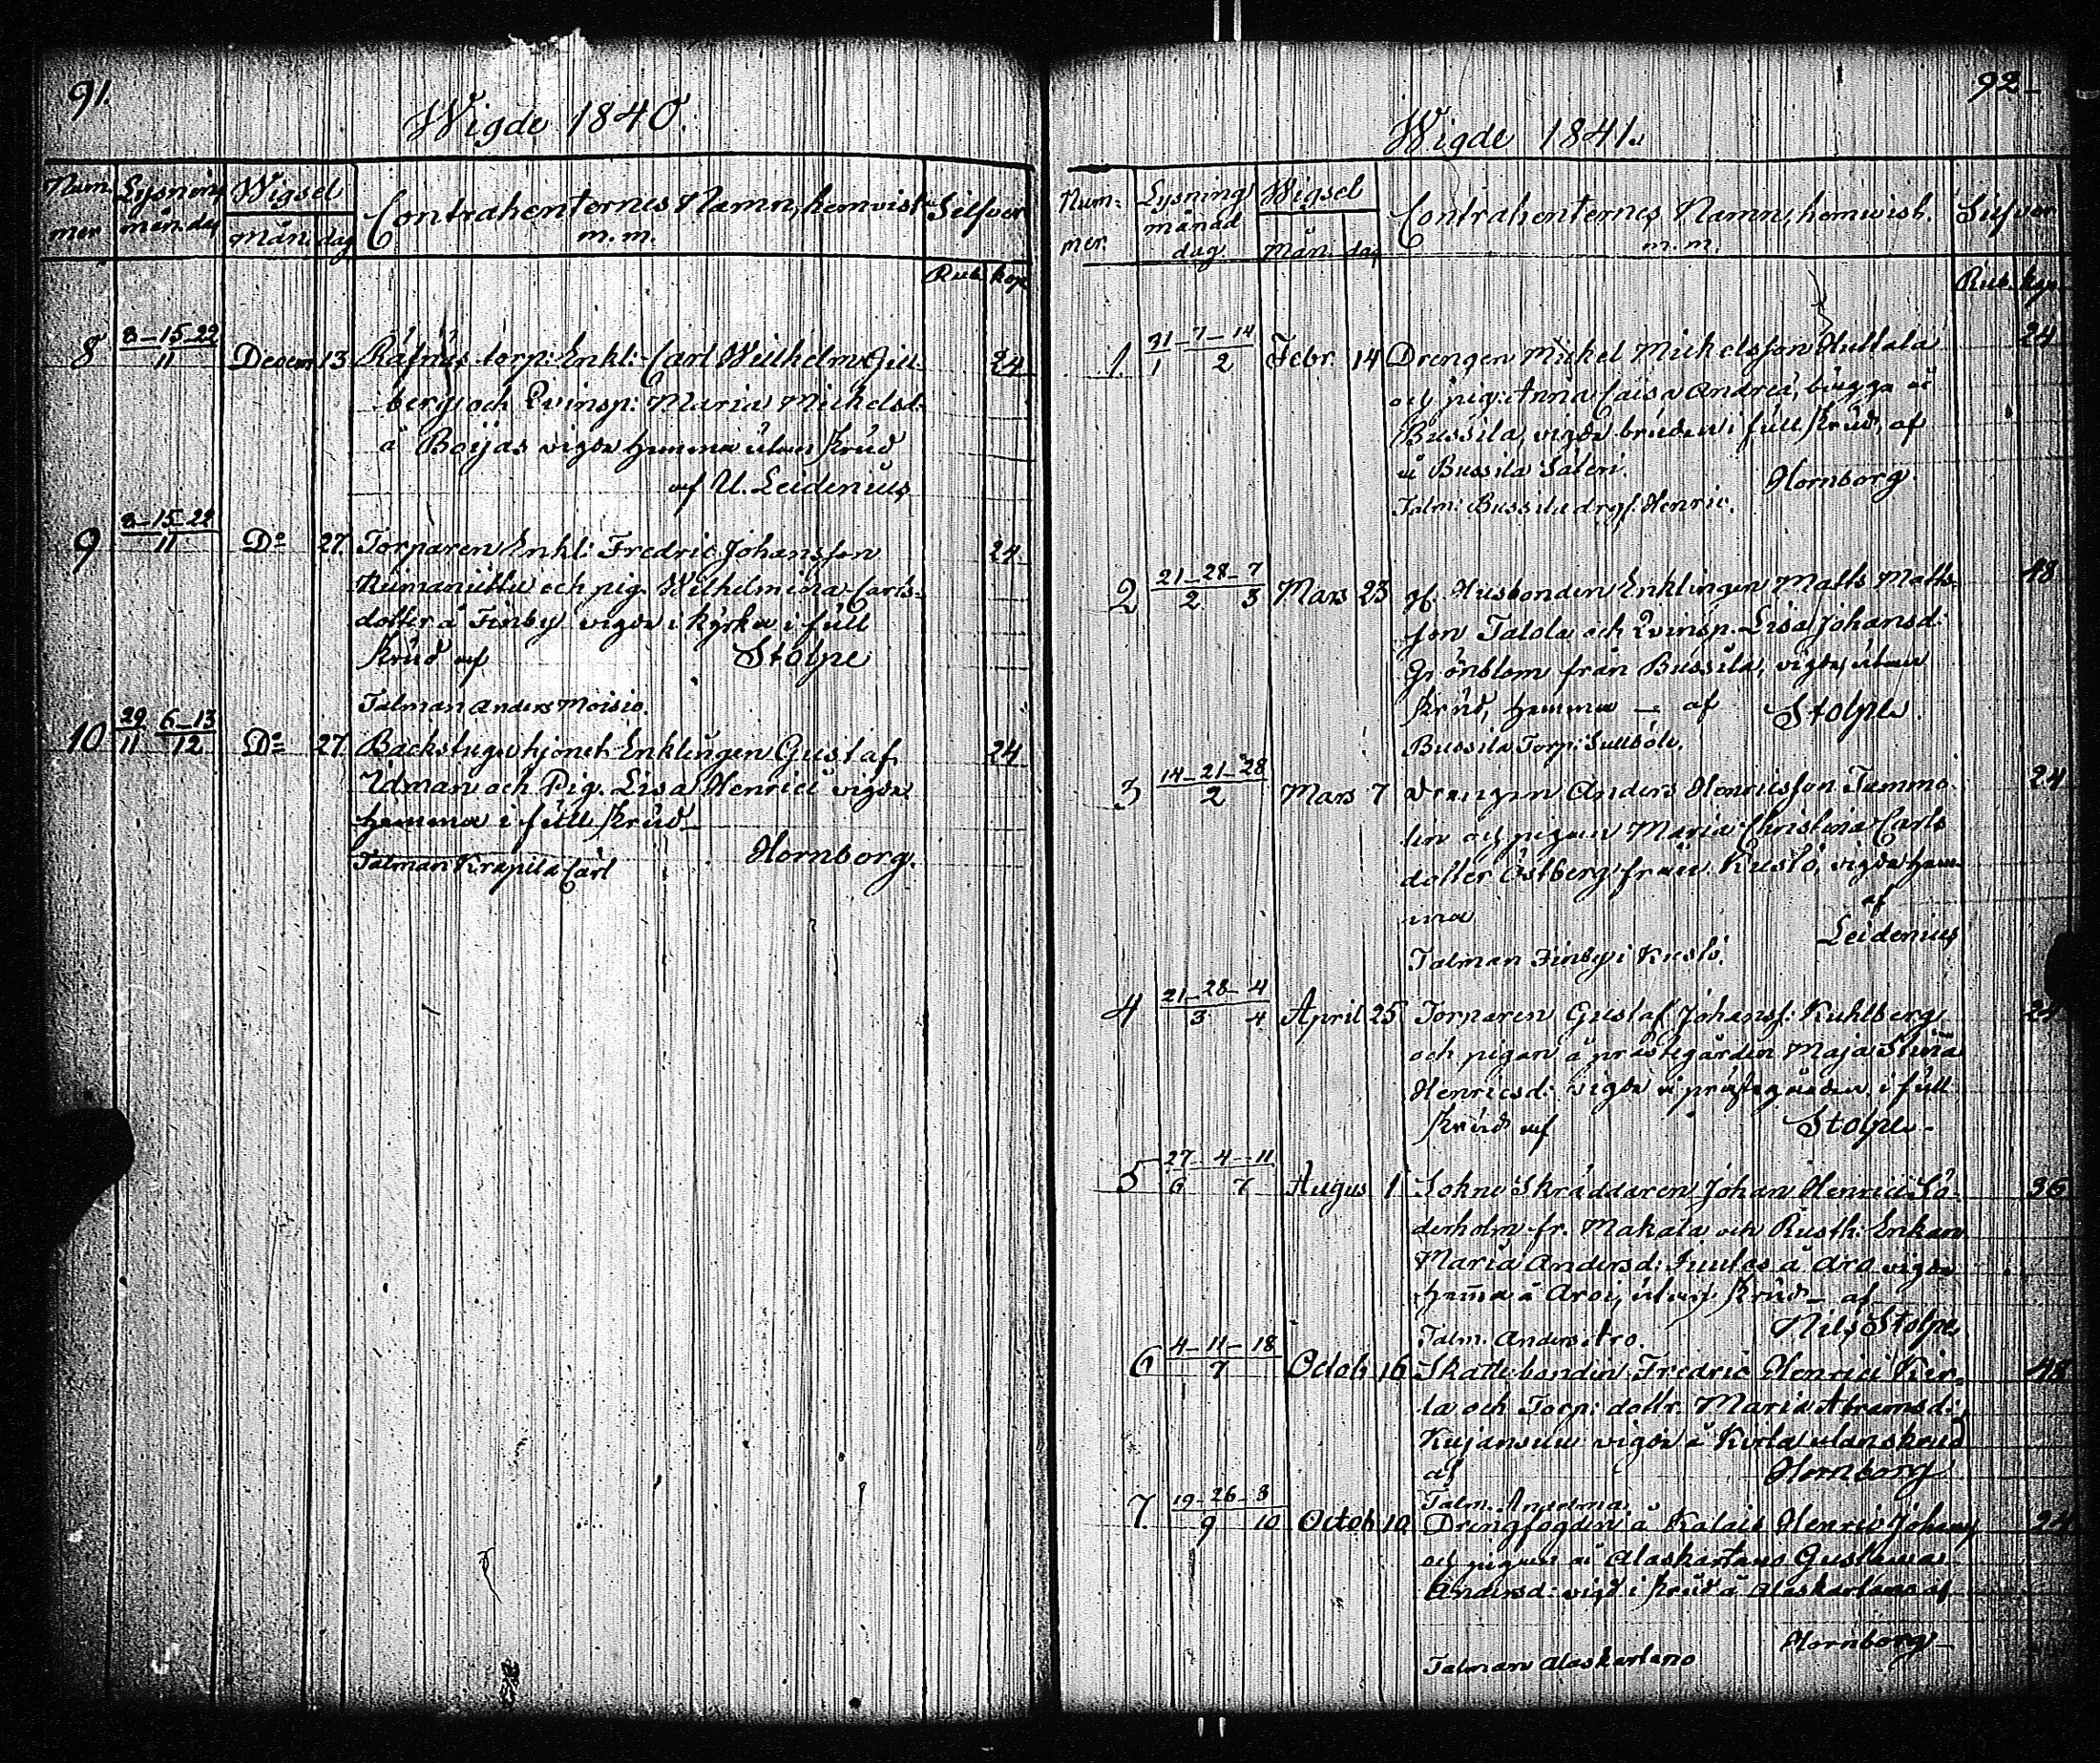 91.
Wigde 1840.
Num- Lysning Wigsel Contrahenternes Namn, hemvist Silfver
mer mån. dag Mån. dag m. m.
Rub. kop
8 8-15-22/11 Decem 13 Räfnäs torp: Enkl: Carl Weilhelm Gill- 24
berg och Qvinsp: Maria Michelsd:
å Boijas vigde hemma utan skrud
af U. Leidenius
9 8-15-22/11 Do 27. Torparen Enkl: Fredric Johansson 24
och pig. Wilhelmina Carls-
dotter å Finby vigde i kyrka i full
skrud af Stolpe
Talman Anders Moisio.
10 29/11 6-13/12 Do 27. Backstuguhjonet Enklingen Gustaf 24
Idman och Pig. Lisa Henrici vigde
hemma i full skrud
Hornborg.
Talman Krapila Carl
92
Wigde 1841.
Num- Lysning Wigsel Contrahenternes Namn, hemvist. Silfver
mer. månad
dag. Mån. dag m. m.
Rub. kop.
1. 31/1 7-14/2 Febr. 14 Drengen Michel Michelsson Huttala 24
och pig: Anna Caisa Andreæ, bägge å
Bussila, vigde bruden i full skrud, af
å Bussila Säteri. Hornborg.
Talm: Bussila drgf: Henric.
2 21-28/2 7/3 Mars 23 gf. Husbonden Enklingen Matts Matts- 48
son Talola och Qvinsp. Lisa Johansd:
Grönblom från Bussila, vigde, utan
skrud, hemma — af Stolpe.
Bussila Torp: Sullböle.
3 14-21-28/2 Mars 7 Drengen Anders Henricsson Tammo- 24
lin och pigan Maria Christina Carls
dotter Östberg från Kustö, vigde hem-
ma af
Leidenius
Talman Finby i Kustö.
4 21-28/3 4/4 April 25 Torparen Gustaf Johanss: Kuhlberg 24
och pigan å prästegården Maja Stina
Henricsd: vigde å prästegården i full
skrud af Stolpe.
5 27/6 4-11/7 Augus 1 Sokne Skräddaren Johan Henrici Sö- 36
derholm fr. Makala och Rusth: Enkan
Maria Andersd: Juules å Aro vigde
hema å Aroi, utan skrud — af
Nils Stolpe
Talm. Anders Aro.
6 4-11-18/7 Octob 16 Skattebonden Fredric Henrici Kir- 48
la och Torp: dottr. Maria Abramsd:
Kujansuu vigde å Kirla utan skrud
af Hornborg
Talm.
7. 19-26/9 3/10 Octob 10 Drengfogden å Kalais Henric Johans 24
och pigan å Alaskartano Gustawa
Andersd: vigd i skrud å Alaskartano af
Hornborg
Talman Alaskartano